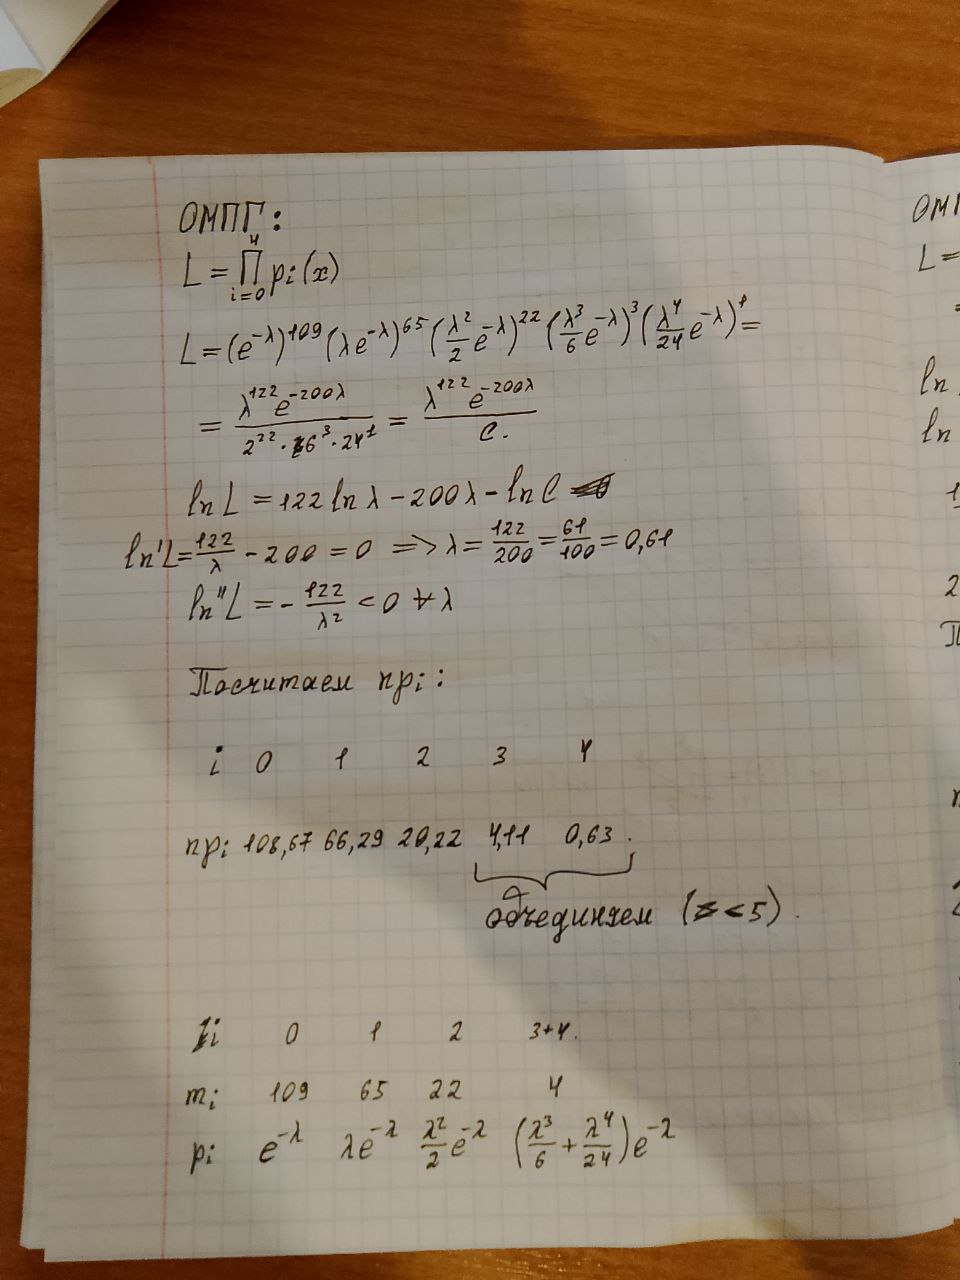 ОМПГ:
L = ∏_{i=0}^{4} pᵢ(x)
L = (e^{-λ})^{109} (λe^{-λ})^{65} (λ²/2 e^{-λ})^{22} (λ³/6 e^{-λ})^{3} (λ⁴/24 e^{-λ})^{1} =
= λ^{122} e^{-200λ} / 2^{22} · 6^{3} · 24^{1} = λ^{122} e^{-200λ} / C.
ln L = 122 ln λ - 200λ - ln C
ln'L = 122/λ - 200 = 0 => λ = 122/200 = 61/100 = 0,61
ln''L = - 122/λ² < 0 ∀ λ
Посчитаем npᵢ:
i 0 1 2 3 4
npᵢ 108,67 66,29 20,22 4,11 0,63.
объединяем (< 5).
i 0 1 2 3+4.
mᵢ 109 65 22 4
pᵢ e^{-λ} λe^{-λ} λ²/2 e^{-λ} (λ³/6 + λ⁴/24) e^{-λ}
ОМП
L =
=
ln
ln
2
П